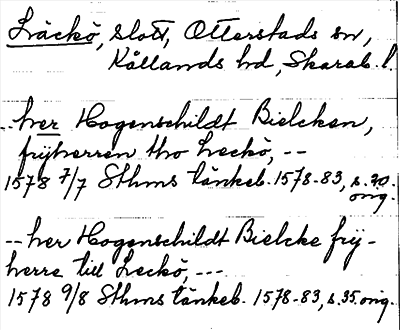 Läckö, slott, Otterstads sn,
Kållands hd, Skarab. l.
--her Hogenschildt Bielcken,
frijherren tho Leckö, --
1578 7/7 Sthms tänkeb. 1578-83, s. 20.
orig.
--her Hogenschildt Bielcke frij-
herre till Leckö, ---
1578 9/8 Sthms tänkeb. 1578-83, s. 35. orig.